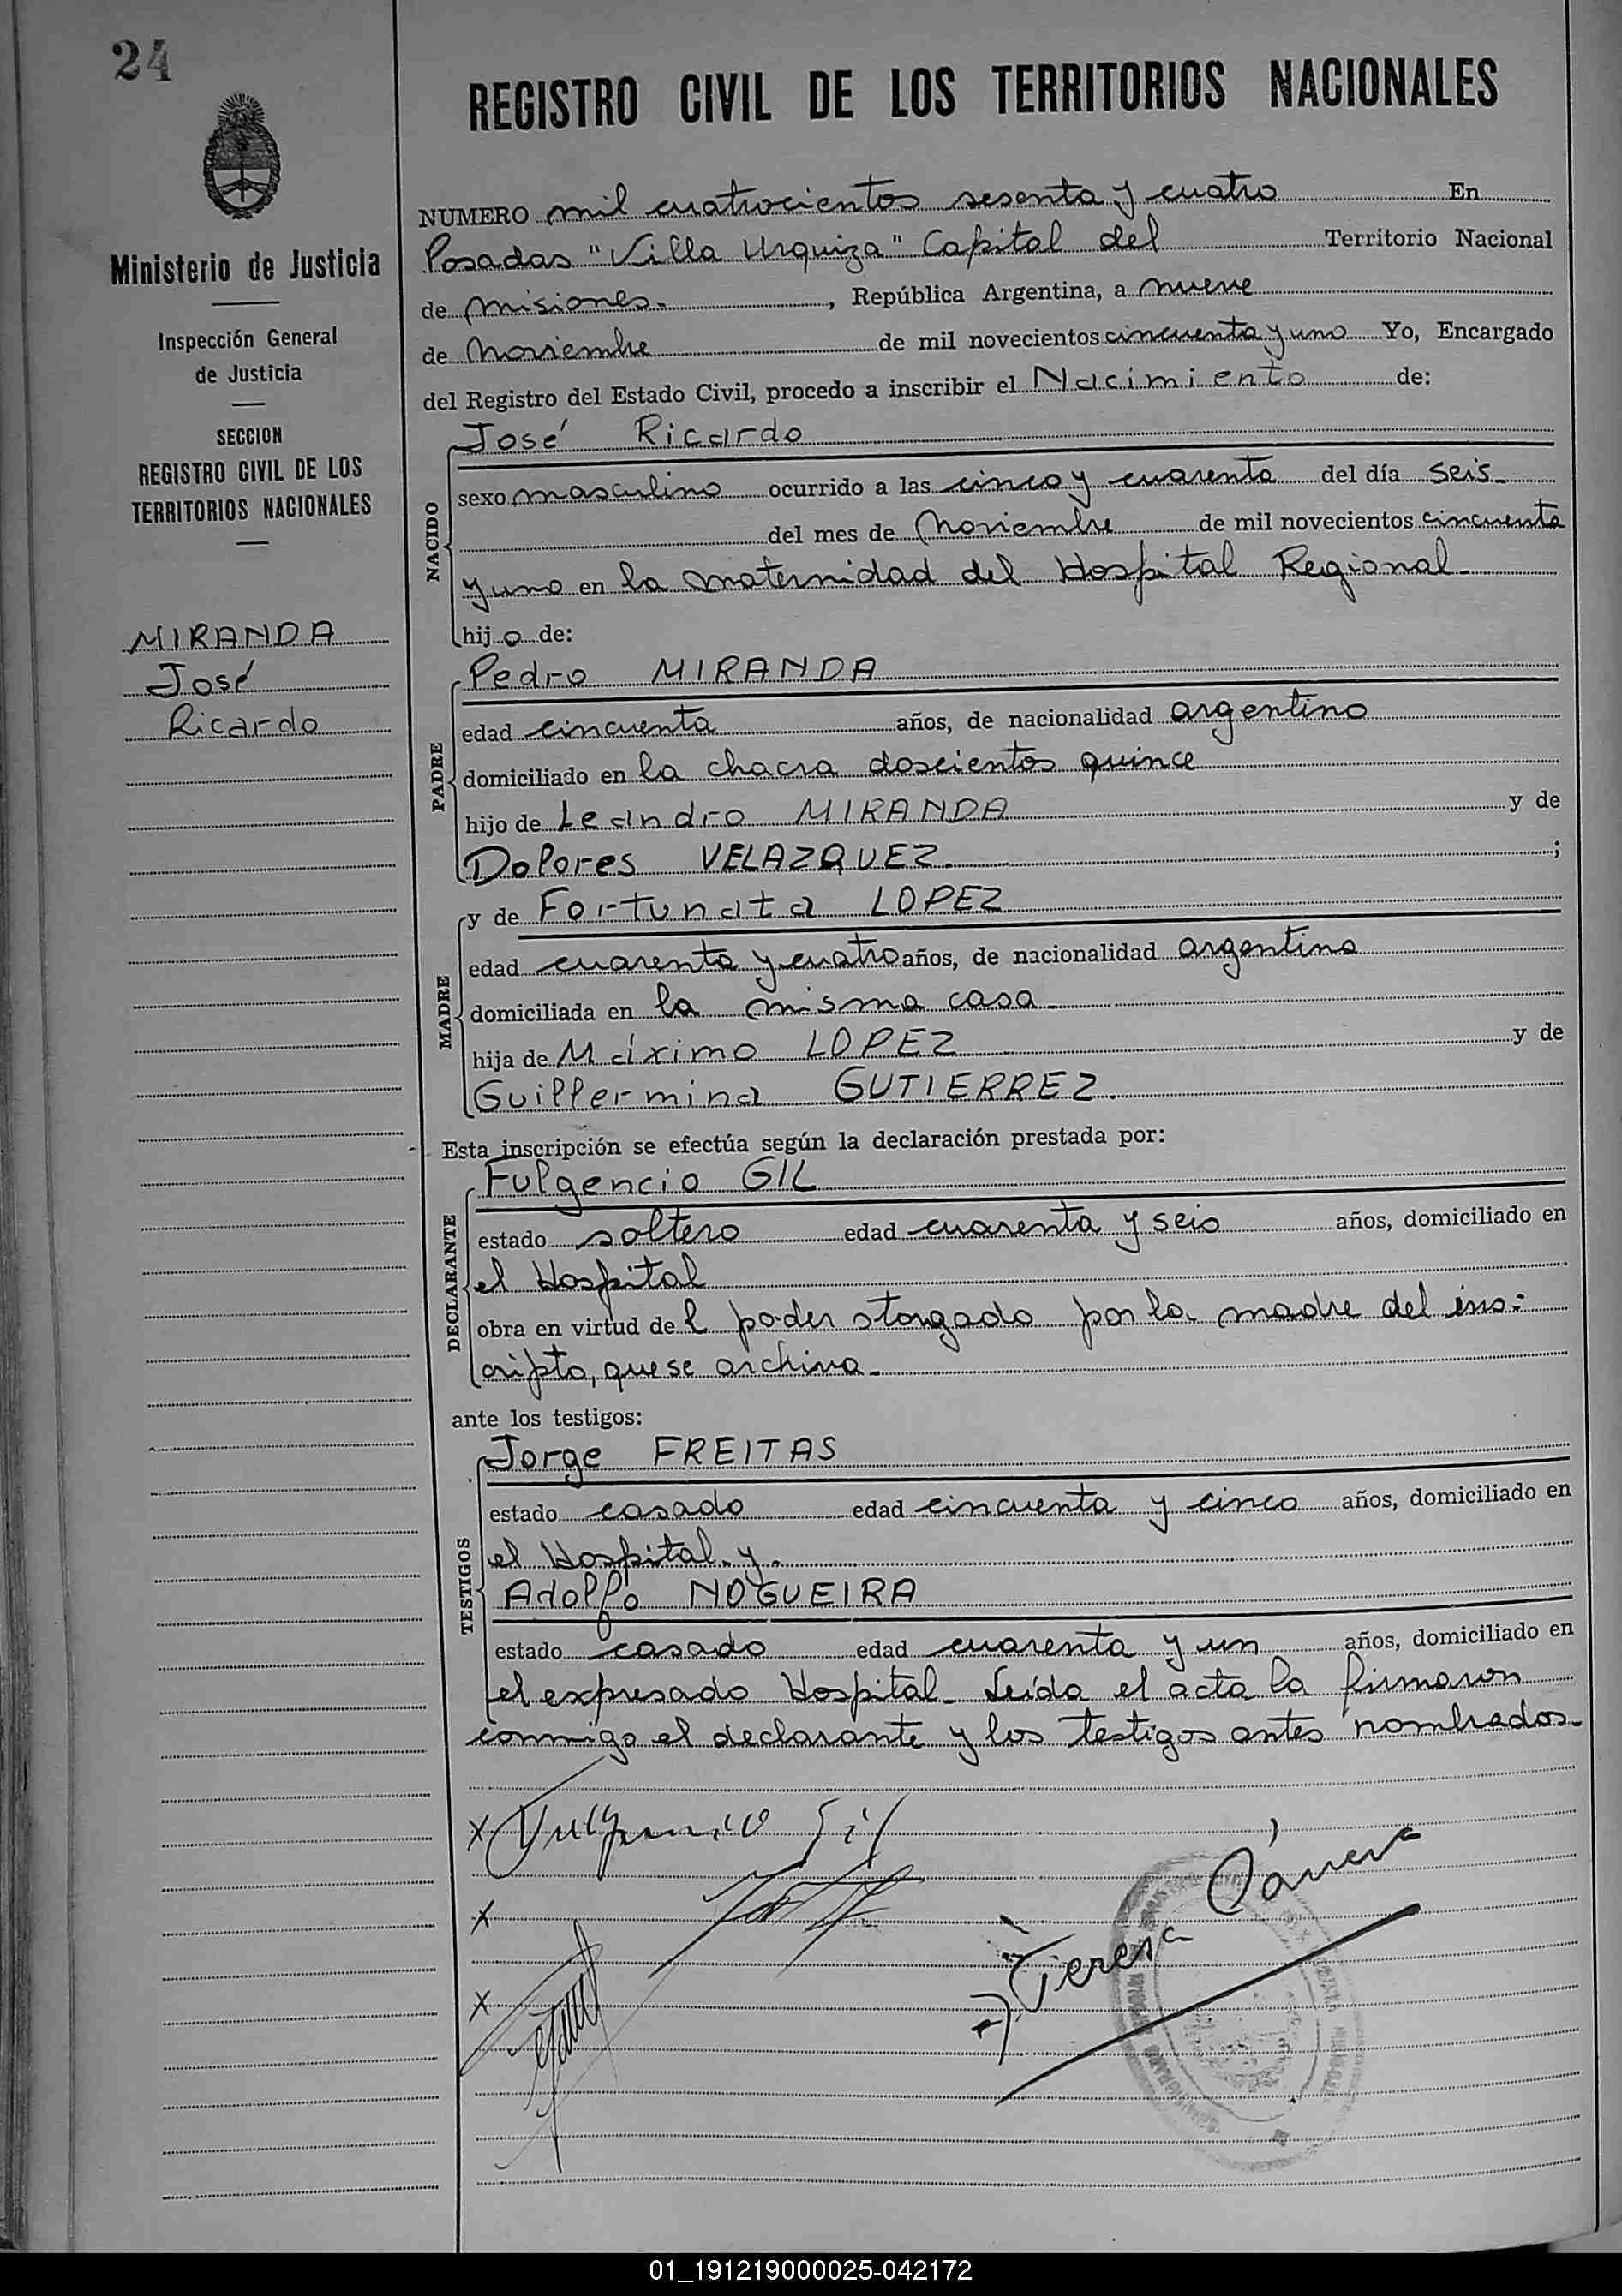 24
REGISTRO CIVIL DE LOS TERRITORIOS NACIONALES
Ministerio de Justicia
Inspección General
de Justicia
SECCION
REGISTRO CIVIL DE LOS
TERRITORIOS NACIONALES
MIRANDA
José
Ricardo
NUMERO mil cuatrocientos sesenta y cuatro En
Posadas "Villa Urquiza" Capital del Territorio Nacional
de Misiones.-, República Argentina, a nueve
de Noviembre de mil novecientos cincuenta y uno Yo, Encargado
del Registro del Estado Civil, procedo a inscribir el Nacimiento de:
José Ricardo
NACIDO
sexo masculino ocurrido a las cinco y cuarenta del día seis-
del mes de Noviembre de mil novecientos cincuenta
y uno en la maternidad del Hospital Regional-
hijo de:
Pedro MIRANDA
PADRE
edad cincuenta años, de nacionalidad argentino
domiciliado en la chacra doscientos quince
hijo de Leandro MIRANDA y de
Dolores VELAZQUEZ. ;
y de Fortunata LOPEZ
MADRE
edad cuarenta y cuatro años, de nacionalidad argentina
domiciliada en la misma casa-
hija de Máximo LOPEZ y de
Guillermina GUTIERREZ.
Esta inscripción se efectúa según la declaración prestada por:
Fulgencio GIL
DECLARANTE
estado soltero edad cuarenta y seis años, domiciliado en
el Hospital
obra en virtud del poder otorgado por la madre del ins-
cripto, que se archiva-
ante los testigos:
Jorge FREITAS
TESTIGOS
estado casado edad cincuenta y cinco años, domiciliado en
el Hospital y
Adolfo NOGUEIRA
estado casado edad cuarenta y un años, domiciliado en
el expresado Hospital- Leída el acta la firmaron
conmigo el declarante y los testigos antes nombrados-
x Fulgencio Gil
x
x
Teresa
01_191219000025-042172